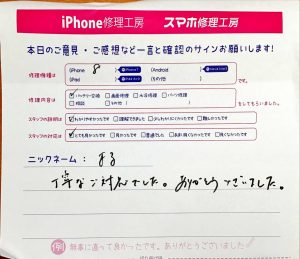 iPhone修理工房 スマホ修理工房
本日のご意見・ご感想など一言と確認のサインお願いします!
修理機種は
iPhone 8
Android
iPad
その他
です。
修理内容は
バッテリー交換 画面修理 水没修理 パーツ修理
相談 その他
をしてもらいました。
スタッフの説明は
わかりやすかったです 理解できました 少しわかりにくかったです 難しかったです
スタッフの対応は
とても良かったです 良かったです 普通でした あまり良くなかったです 良くなかったです
ニックネーム:
丁寧なご対応でした。ありがとうございました。
例 無事に直って良かったです。ありがとうございました!